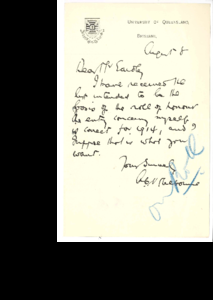 UNIVERSITY OF QUEENSLAND,
BRISBANE.
August 8
Dear Mr
I have received the
list intended to be the
basis of the roll of honour
The entry concerning myself
is correct for 1914, and I
suppose that is what you
want.
Yours sincerely